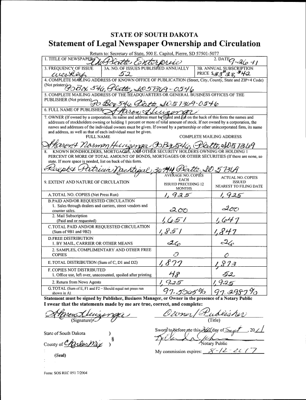 STATE OF SOUTH DAKOTA
Statement of Legal Newspaper Ownership and Circulation
Return to: Secretary of State, 500 E. Capitol, Pierre, SD 57501-5077
1. TITLE OF NEWSPAPER The Platte Enterprise 2. DATE 9-26-11
3. FREQUENCY OF ISSUE weekly
3A. NO. OF ISSUES PUBLISHED ANNUALLY 52
3B. ANNUAL SUBSCRIPTION PRICE
4. COMPLETE MAILING ADDRESS OF KNOWN OFFICE OF PUBLICATION (Street, City, County, State and ZIP+4 Code) (Not printers)
PO Box 546, Platte, SD 57369-0546
5. COMPLETE MAILING ADDRESS OF THE HEADQUARTERS OF GENERAL BUSINESS OFFICES OF THE PUBLISHER (Not printer)
PO Box 546, Platte, SD 57369-0546
6. FULL NAME OF PUBLISHER Sharon Huizenga
7. OWNER (If owned by a corporation, its name and address must be stated and also the names and addresses of stockholders owning or holding 1 percent or more of total amount of stock. If not owned by a corporation, the names and addresses of the individual owners must be given. If owned by a partnership or other unincorporated firm, its name and address, as well as that of each individual must be given.
FULL NAME COMPLETE MAILING ADDRESS
Huizenga, Box 546, Platte, SD 57369
8. KNOWN BONDHOLDERS, MORTGAGES, AND OTHER SECURITY HOLDERS OWNING OR HOLDING 1 PERCENT OR MORE OF TOTAL AMOUNT OF BONDS, MORTGAGES OR OTHER SECURITIES (If there are none, so state. If more space is needed, list on back of this form.
Platte, SD 57369
9. EXTENT AND NATURE OF CIRCULATION
AVERAGE NO. COPIES EACH ISSUE DURING PRECEDING 12 MONTHS
ACTUAL NO. COPIES ISSUED NEAREST TO FILING DATE
A. TOTAL NO. COPIES (Net Press Run) 1,925 1,925
B. PAID AND/OR REQUESTED CIRCULATION
1. Sales through dealers and carriers, street vendors and counter sales 200 200
2. Mail Subscription (Paid and or requested) 1,651 1,647
C. TOTAL PAID AND/OR REQUESTED CIRCULATION (Sum of 9B1 and 9B2) 1,851 1,847
D. FREE DISTRIBUTION
1. BY MAIL, CARRIER OR OTHER MEANS 26 26
2. SAMPLES, COMPLIMENTARY AND OTHER FREE COPIES 0 0
E. TOTAL DISTRIBUTION (Sum of C, D1 and D2) 1,877 1,873
F. COPIES NOT DISTRIBUTED
1. Office use, left over, unaccounted, spoiled after printing 48 52
2. Return from News Agents
G. TOTAL (Sum of E, F1 and F2 - Should equal net press run shown in A) 1,925 1,925
Statement must be signed by Publisher, Business Manager, or Owner in the presence of a Notary Public
I swear that the statements made by me are true, correct, and complete:
Sharon Huizenga Owner/Publisher
(Signature) (Title)
State of South Dakota )
County of Charles Mix )
(Seal)
Sworn to before me this day of Sept 2011
Notary Public
My commission expires:
Form: SOS REC 051 7/2004